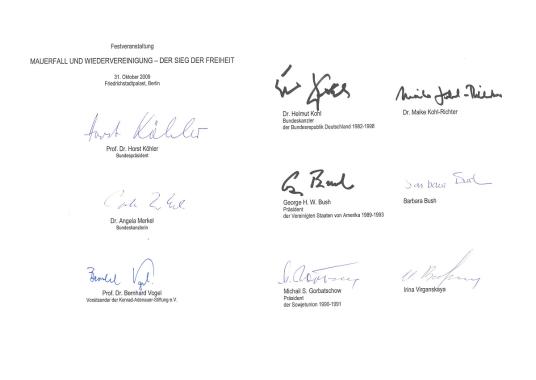 Festveranstaltung
MAUERFALL UND WIEDERVEREINIGUNG – DER SIEG DER FREIHEIT
31. Oktober 2009
Friedrichstadtpalast, Berlin
Horst Köhler
Prof. Dr. Horst Köhler
Bundespräsident
Dr. Angela Merkel
Bundeskanzlerin
Bernhard Vogel
Prof. Dr. Bernhard Vogel
Vorsitzender der Konrad-Adenauer-Stiftung e.V.
Dr. Helmut Kohl
Bundeskanzler
der Bundesrepublik Deutschland 1982-1998
Maike Kohl-Richter
Dr. Maike Kohl-Richter
G Bush
George H. W. Bush
Präsident
der Vereinigten Staaten von Amerika 1989-1993
Barbara Bush
Barbara Bush
Michail S. Gorbatschow
Präsident
der Sowjetunion 1990-1991
Irina Virganskaya